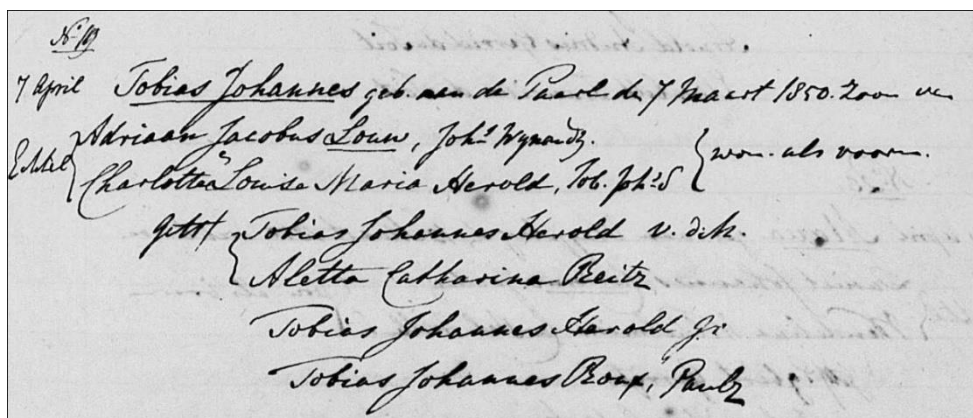 No 169
7 April Tobias Johannes geb. aan de Paarl de 7 Maart 1850. Zoon van
Adriaan Jacobus Louw, Johs Wynandz.
Echtel Charlotta Louisa Maria Herold, Tob. Johs d won. als voorn.
gett Tobias Johannes Herold v. d. k.
Aletta Catharina Reitz
Tobias Johannes Herold Jr
Tobias Johannes Roux, Paulz